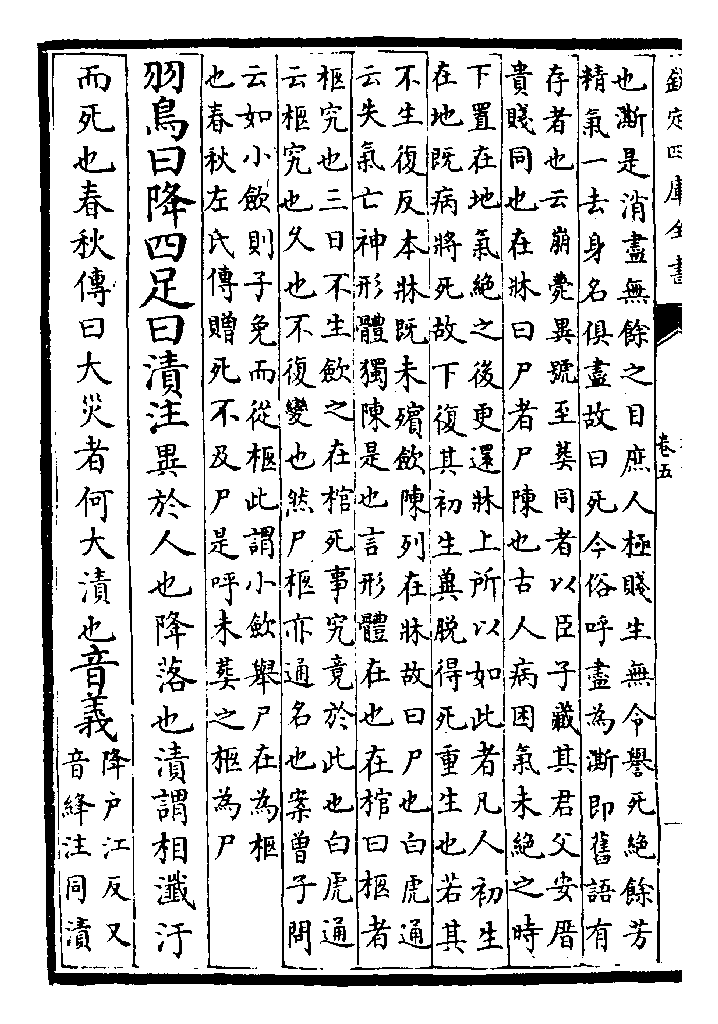 欽定四庫全書
卷五
也澌是消盡無餘之目庶人極賤生無令譽死絶餘芳
精氣一去身名俱盡故曰死今俗呼盡為澌即舊語有
存者也云崩薨異號至葬同者以臣子藏其君父安厝
貴賤同也在牀曰尸者尸陳也古人病困氣未絶之時
下置在地氣絶之後更還牀上所以如此者凡人初生
在地既病將死故下復其初生兾脱得死重生也若其
不生復反本牀既未殯歛陳列在牀故曰尸也白虎通
云失氣亡神形體獨陳是也言形體在也在棺曰柩者
柩究也三日不生歛之在棺死事究竟於此也白虎通
云柩究也久也不復變也然尸柩亦通名也案曽子問
云如小歛則子免而從柩此謂小歛舉尸在為柩
也春秋左氏傳贈死不及尸是呼未葬之柩為尸
羽鳥曰降四足曰漬注異於人也降落也漬謂相瀸汙
而死也春秋傳曰大災者何大漬也音義
降户江反又
音絳注同漬